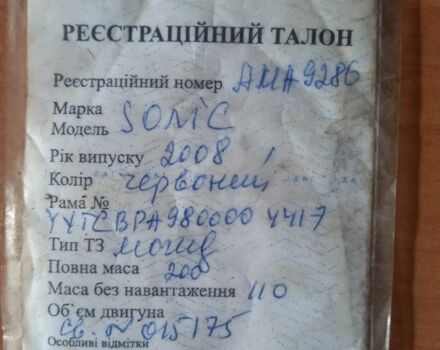 РЕЄСТРАЦІЙНИЙ ТАЛОН
Реєстраційний номер АМА9286
Марка
Модель SONIC
Рік випуску 2008
Колір червоний
Рама №
YYTCBPA980000 4417
Тип ТЗ мопед
Повна маса 200
Маса без навантаження 110
Об´єм двигуна
Св. №015175
Особливі відмітки